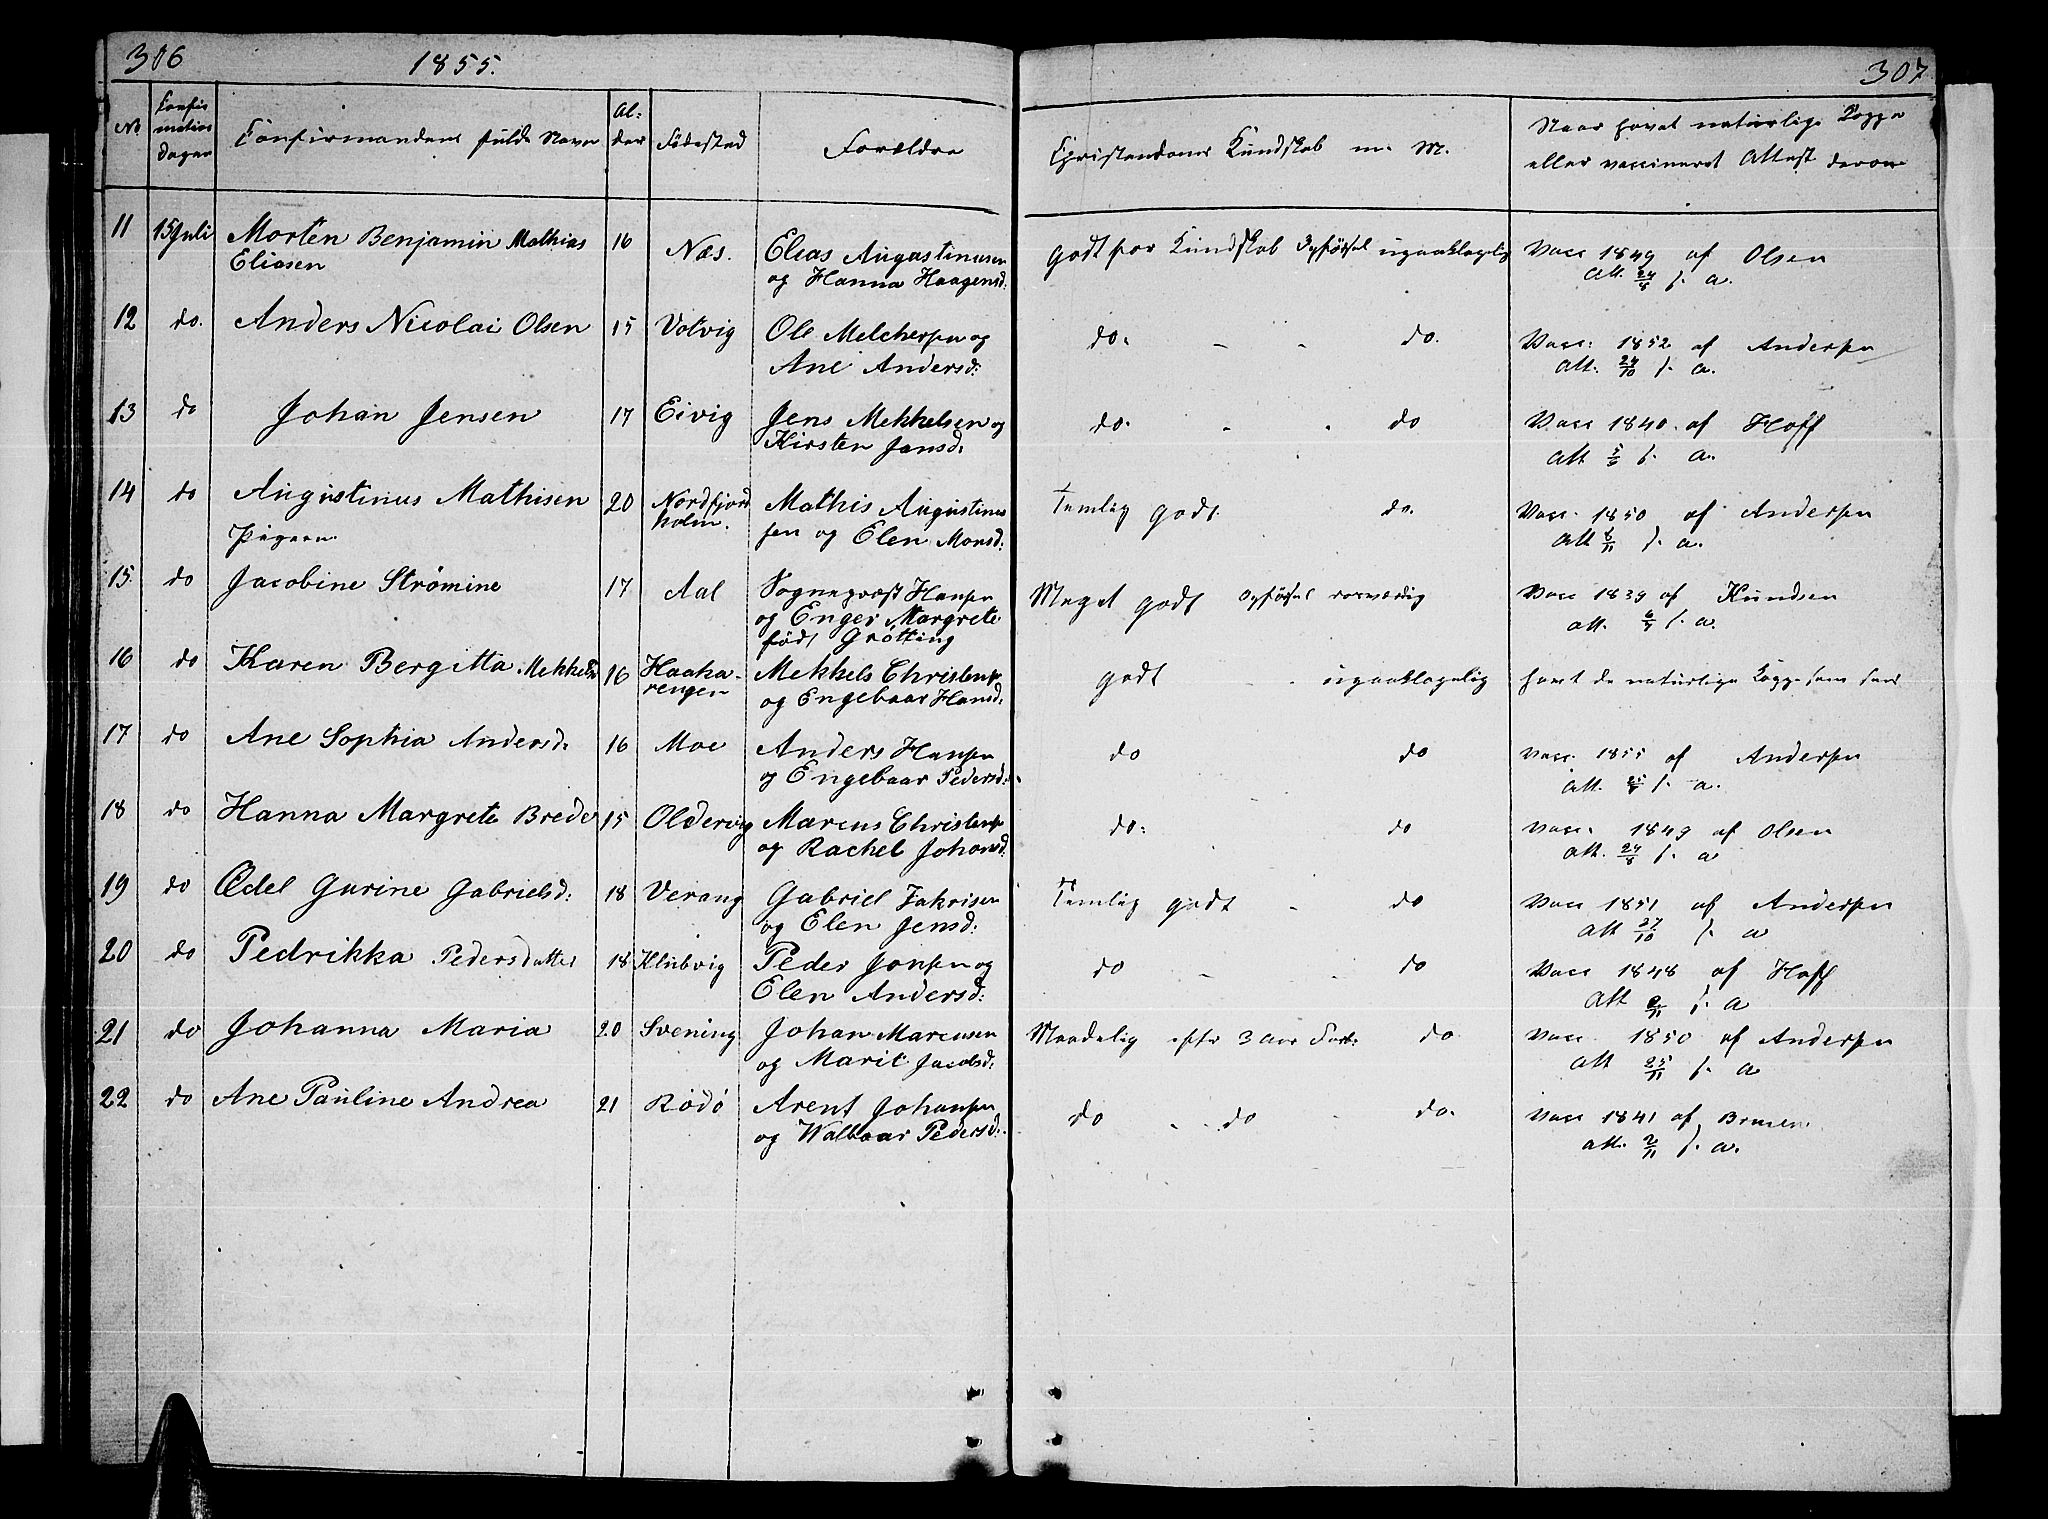 306 1855. 307
No Confirmations Dagen Confirmandens fulde Navn Alder Födested Forældre Christendoms Kundskab m. M. Naar havt naturlige Kopper
eller vaccineret Attest derom
11 15 Juli Morten Benjamin Mathias 16 Næs. Elias Augustinusen godt for Kundskab Opförsel upaaklagelig Vacc 1849 af Olsen
Eliasen og Hanna Haagensd: Att. 24/8 s. a.
12 do. Anders Nicolai Olsen 15 Votvig Ole Melchersen og do. - - do. Vacc: 1852 af Andersen
Ane Andersd: Att. 24/10 s. a.
13 do Johan Jensen 17 Eivig Jens Mekkelsen og do. - . do Vacc 1840 af Hoff
Kirsten Jansd: Att s. a.
14 do Augustinus Mathisen 20 Nordfjord Mathis Augustinus Temlig godt do. Vacc. 1850 af Andersen
holm. sen og Elen Monsd: Att 6/11 s. a.
15 do Jacobine Strømine 17 Aal Sognepræst Hansen Meget godt Opförsel rosværdig Vacc 1839 af Knudsen
og Enger Margrete att. s. a.
födt Grötting
16 do Karen Bergitta Mekkelsd 16 Haaka- Mekkels Christens godt - . upaaklagelig havt de naturlige Kopper
rengen og Engebaar Hansd:
17 do Ane Sophia Andersd: 16 Moe Anders Hansen do do Vacc. 1855 af Andersen
og Engebaar Pedersd: Att. s. a.
18 do Hanna Margrete Brede 15 Oldervig Marcus Christens do: do Vacc. 1849 af Olsen
og Rachel Johansd: att. 24/8 s. a
19 do Ædel Gurine Gabrielsd: 18 Verang Gabriel Zakrisen Temlig godt - do Vacc 1851 af Andersen
og Elen Jensd: Att 27/10 s. a
20 do Pedrikka Pedersdatter 18 Klubvig Peder Jonsen og do - . do Vacc 1848 af Hoff
Elen Andersd: Att s. a
21 do Johanna Maria 20 Svening Johan Marcusen Maadelig efter 3 Aar do Vacc 1850 af Andersen
og Marit Jacobsd: Att 25/11 s. a
22 do Ane Pauline Andrea 21 Rödö Arent Johansen do - do - do. Vacc 1841 af Bruun
og Walbaar Pedersd: att. 2/11 s. a.